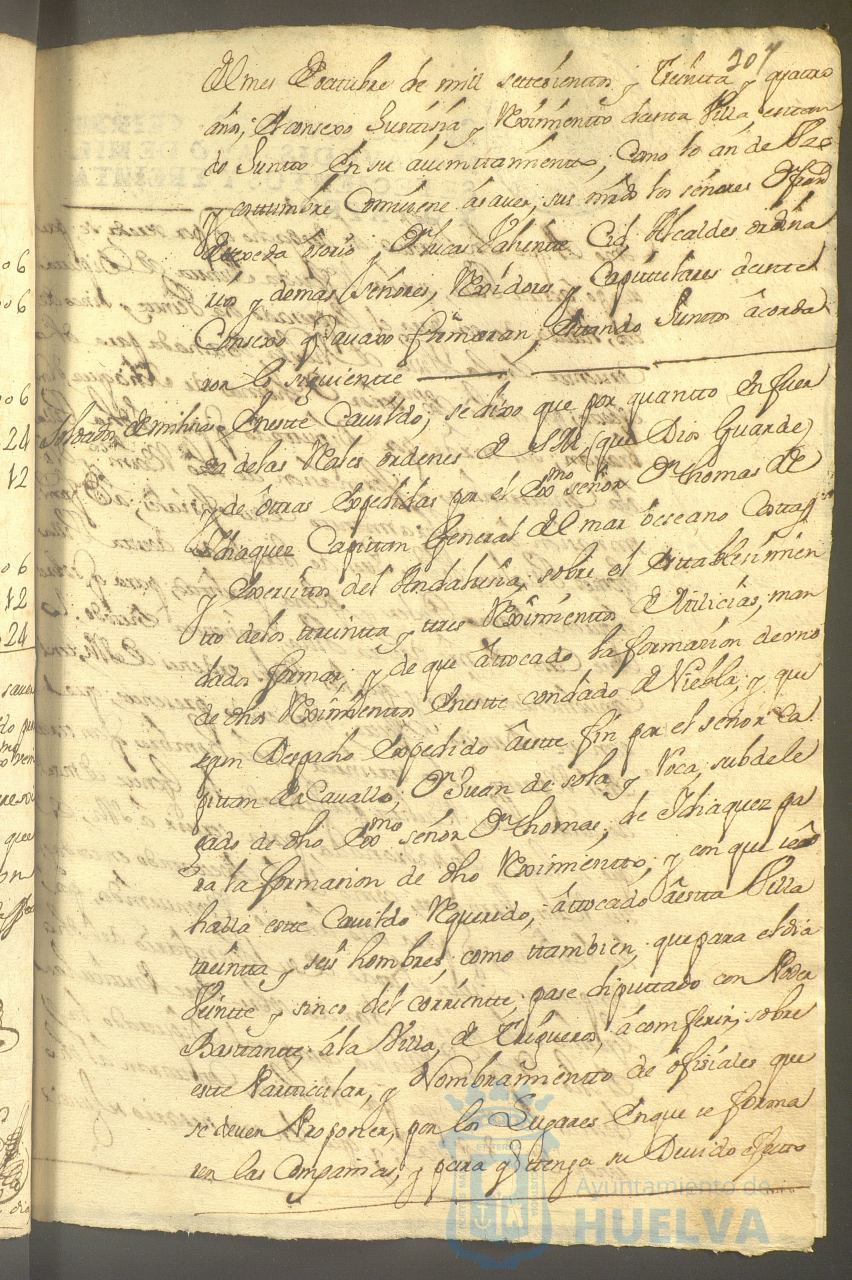 207
del mes de octubre de mil settesientos y treinta y quatro
años, el consexo Justtisia y Reximientto destta Villa estan
do Juntto en su aiuntamientto, como lo an de Uso
y costtumbre Combiene a saver, sus mrds los señores Dn
Quexeda osorio y Dn Lucas Valiente Cid, Alcaldes ordina
rios y demas señores, Rexidores y Capittulares deste
Consexo q avaxo firmaran, estando Junttos acorda
ron lo siguientte
Soldados de milisias
En estte Cavildo, se dixo que por quantto en fuer
sa de las Rales ordenes de S M (que Dios Guarde)
y de ottras expedidas por el Exmo señor Dn thomas de
Idiaquez Capittan General del mar oceano Costtas
y exercittos del Andalusia, sobre el esttablesimien
tto de los treintta y ttres Reximienttos de Milicias, man
dados formar, y de que a ttocado la formasion de vno
de dhos Reximienttos en estte condado de Niebla, y que
segun Despacho expedido a estte fin por el señor Ca
pittan de Cavallos, Dn Juan de sola y Roca, subdele
gado de dho Exmo señor Dn thomas, de Idiaquez pa
ra la formasion de dho Reximientto, y con que se
halla estte Cavildo Requerido, a ttocado a estta Villa
treintta y seis hombres, como ttambien, que para el dia
Veintte y sinco del corrientte, pase diputtado con Poder
Basttantte, a la Villa, de Trigueros, a comferir, sobre
estte Partticular, y Nombramientto de ofisiales que
se deven Proponer, por los Lugares en que se forma
ren las Companias, y para q ttenga su Devido efectto
Ayuntamiento de
HUELVA